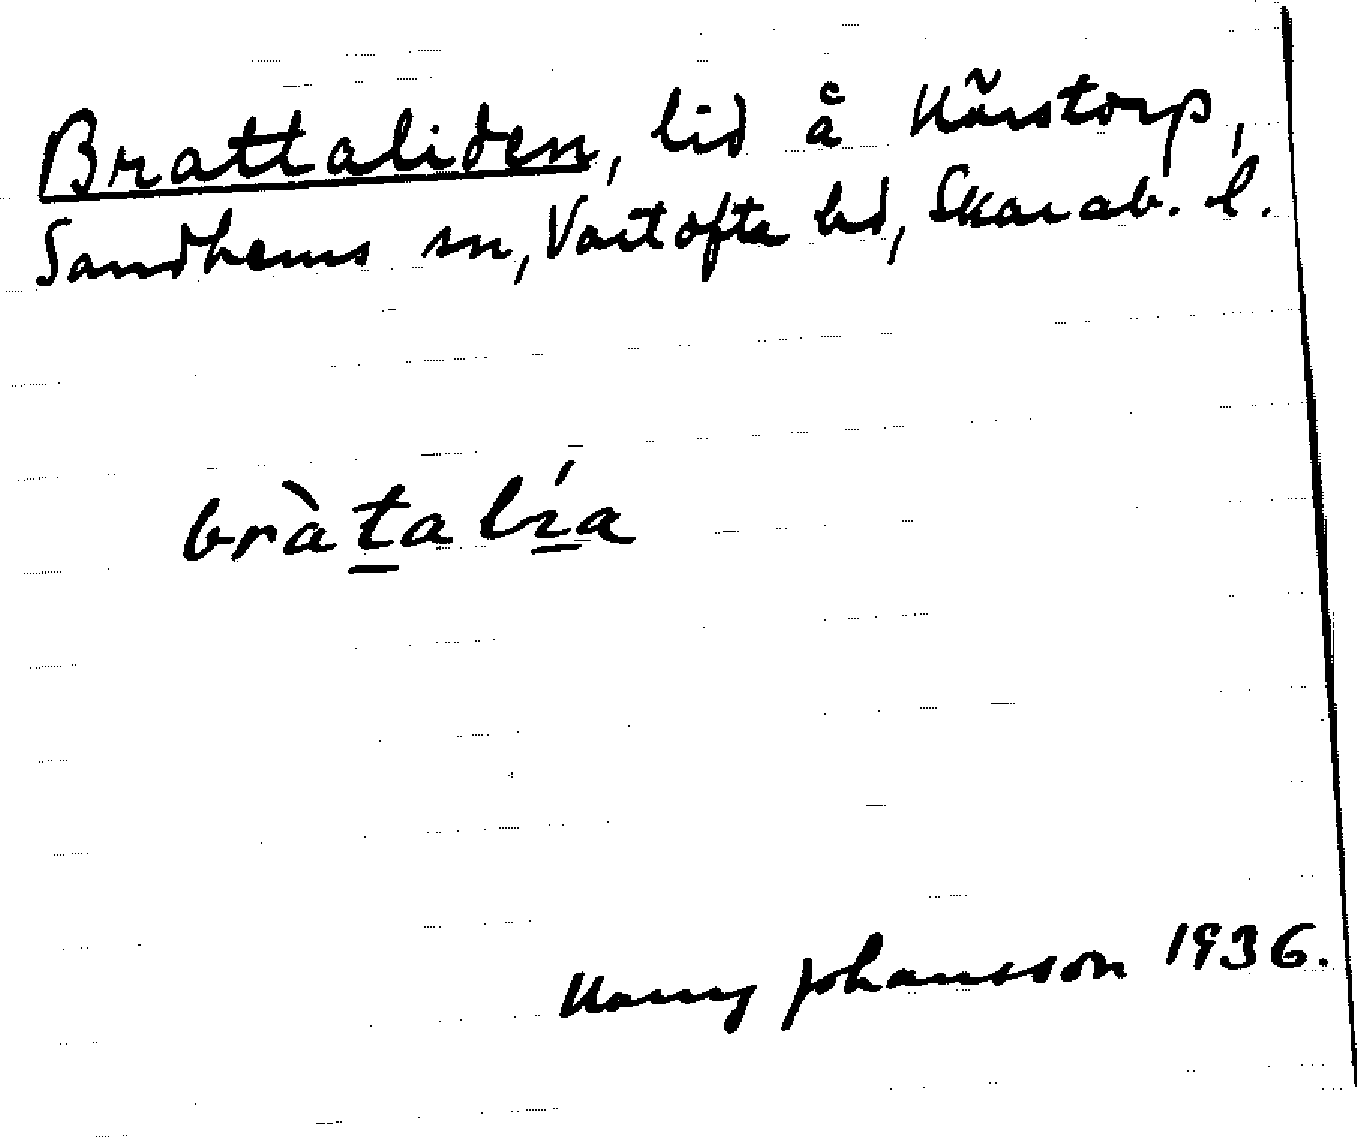 Brattaliden, lid å Kärstorp,
Sandhems sn, Vartofta hd, Skarab. l.
bràtalía
Harry Johansson 1936.